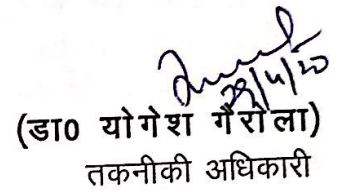 29/4/20
(डा० योगेश गैरोला)
तकनीकी अधिकारी